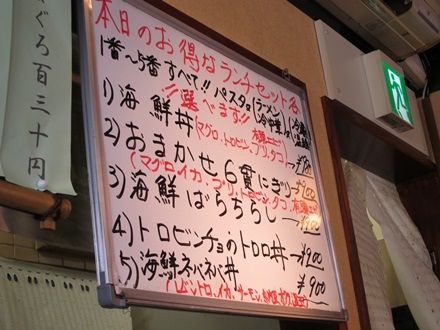 ぐろ百三十円
本日のお得なランチセット名
1番～5番すべて!! パスタorラーメン
!!選べます!!
1)海鮮丼
(マグロ、トロビン、ブリ、タコ
2)おまかせ6貫にぎり ¥900
(マグロイカ、ブリ、トロビン、タコ
3)海鮮ばらちらし ¥900
4)トロビンチョのトロロ丼 ¥900
5)海鮮ネバネバ丼 ¥900
イカ、サーモン